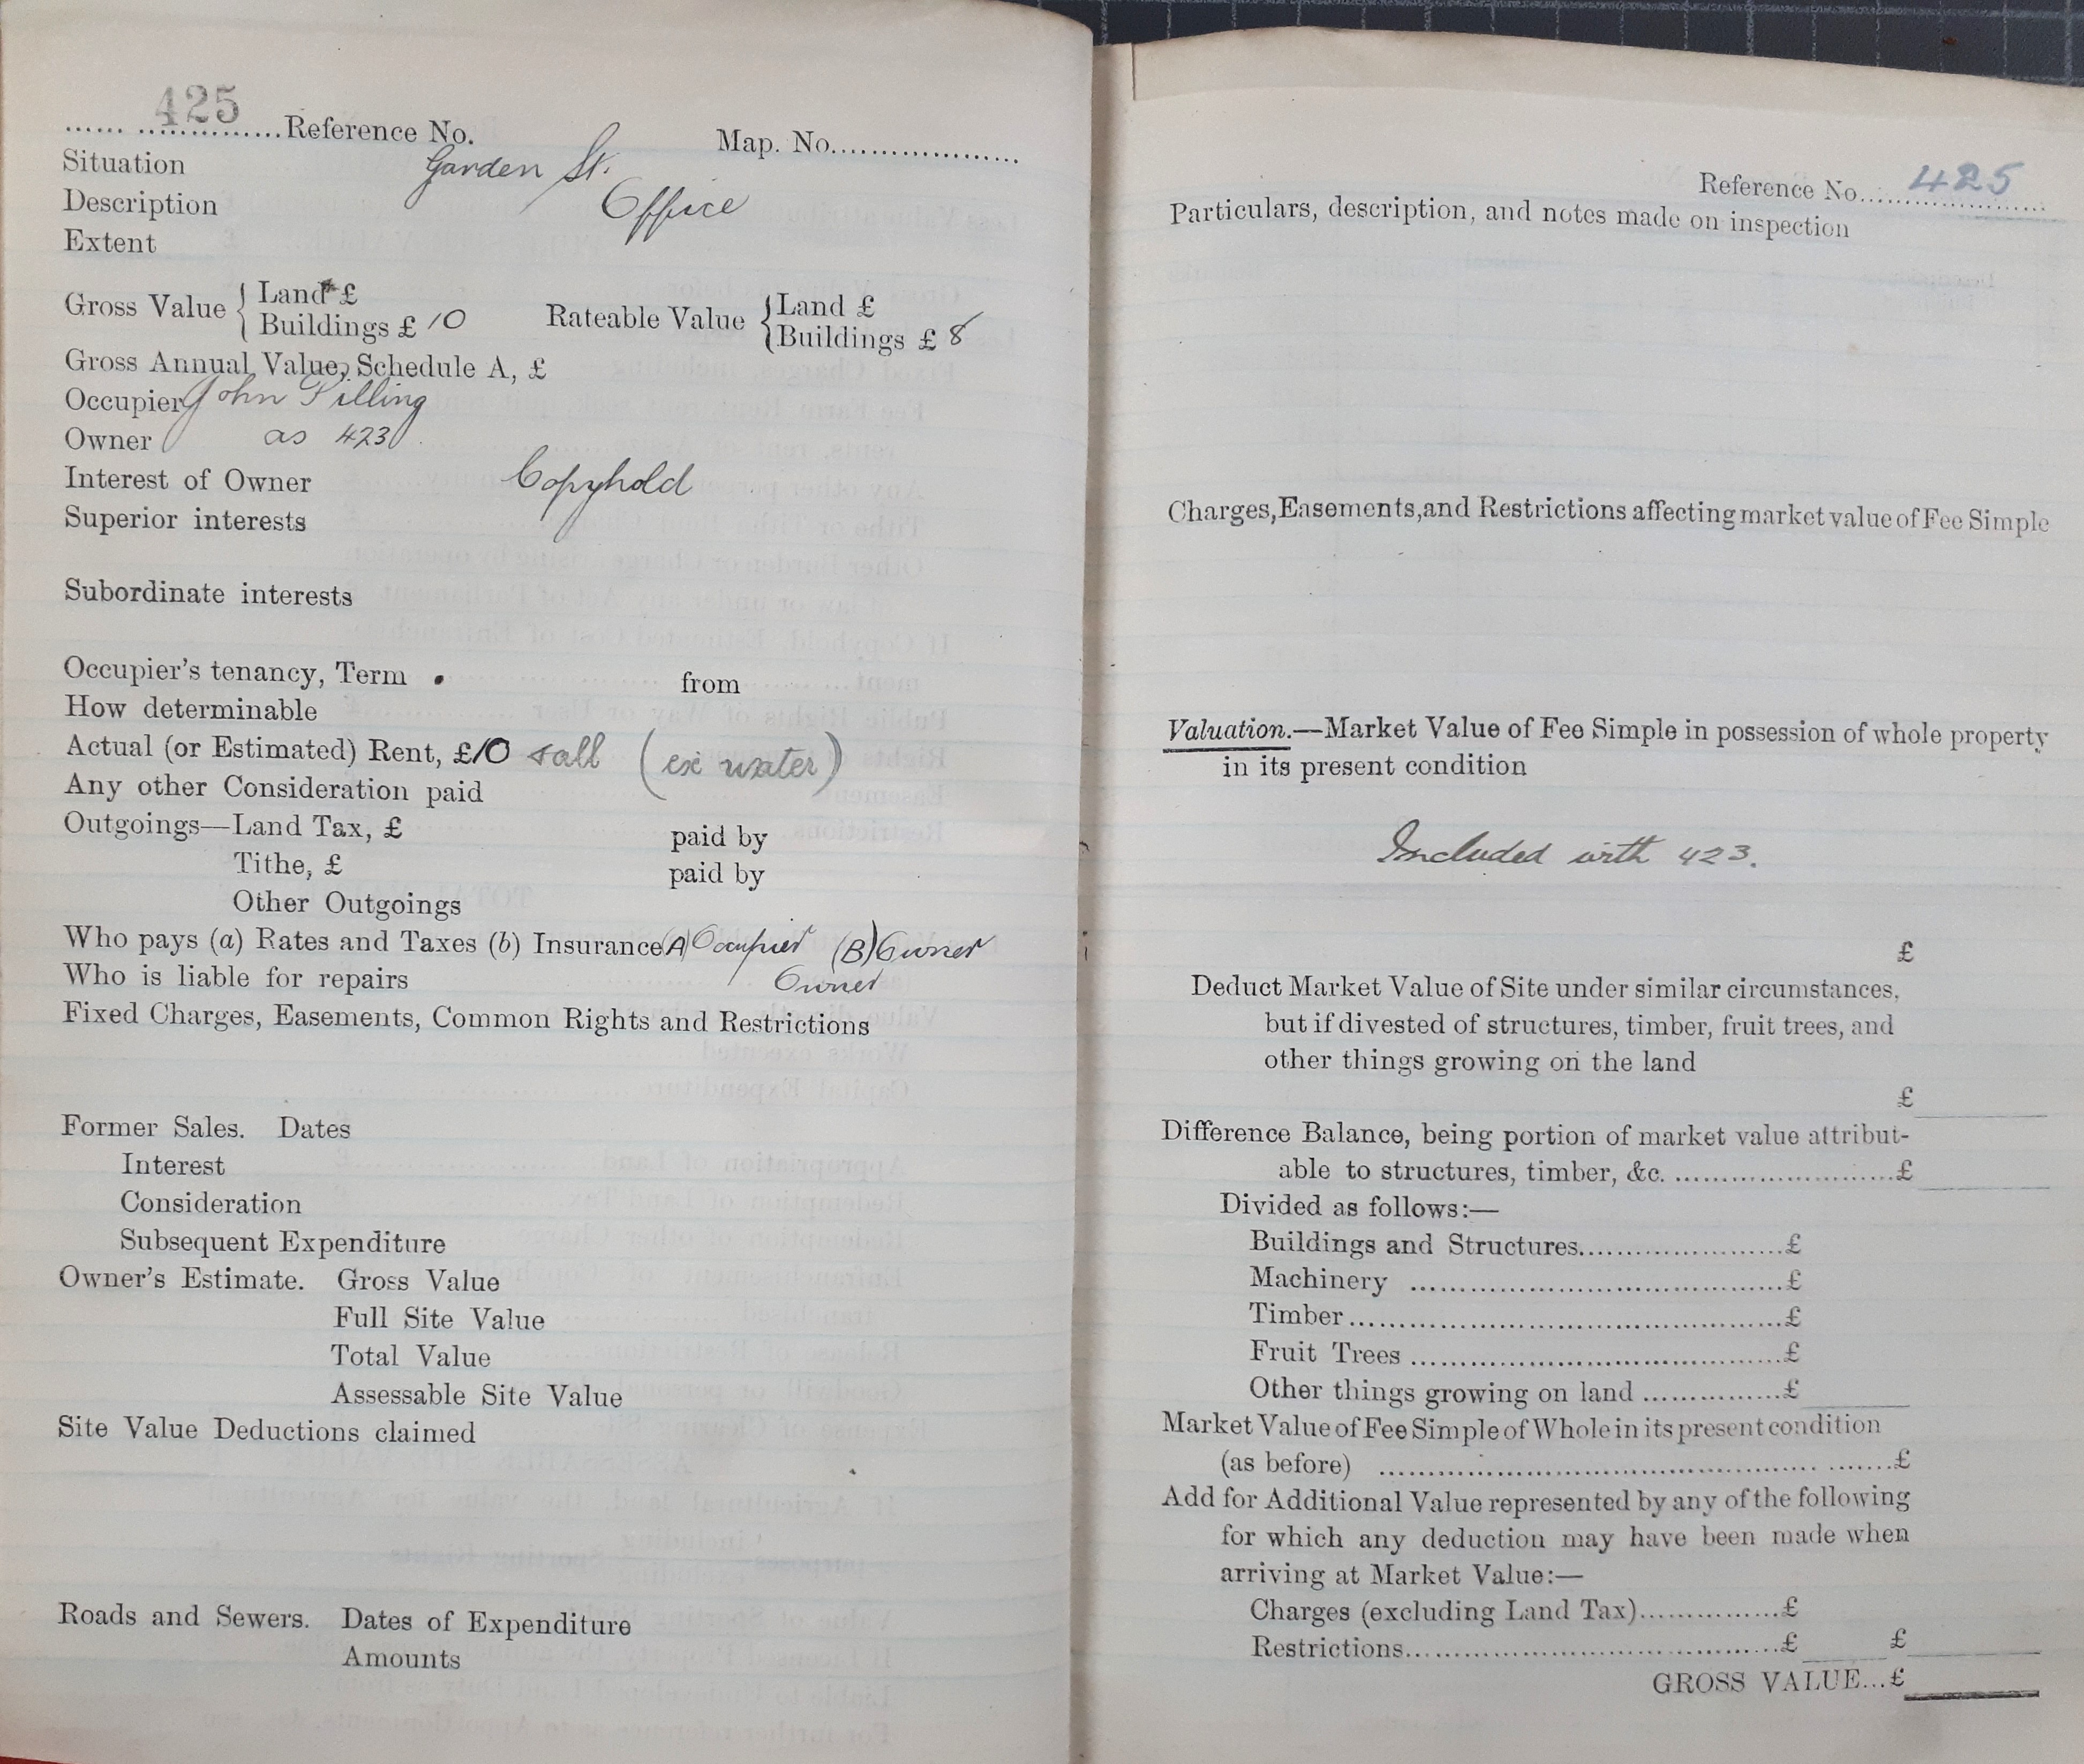 425
...... ..............Reference No. Map. No...................
Situation Garden St.
Description Office
Extent
Gross Value { Land £ Rateable Value { Land £
Buildings £ 10 Buildings £ 8
Gross Annual Value, Schedule A, £
Occupier John Pilling
Owner as 423
Interest of Owner Copyhold
Superior interests
Subordinate interests
Occupier's tenancy, Term from
How determinable
Actual (or Estimated) Rent, £10 (ex water)
Any other Consideration paid
Outgoings—Land Tax, £ paid by
Tithe, £ paid by
Other Outgoings
Who pays (a) Rates and Taxes (b) Insurance (A) Occupier (B) Owner
Who is liable for repairs Owner
Fixed Charges, Easements, Common Rights and Restrictions
Former Sales. Dates
Interest
Consideration
Subsequent Expenditure
Owner's Estimate. Gross Value
Full Site Value
Total Value
Assessable Site Value
Site Value Deductions claimed
Roads and Sewers. Dates of Expenditure
Amounts
Reference No. 425
Particulars, description, and notes made on inspection
Charges, Easements, and Restrictions affecting market value of Fee Simple
Valuation.—Market Value of Fee Simple in possession of whole property
in its present condition
Included with 423.
£
Deduct Market Value of Site under similar circumstances,
but if divested of structures, timber, fruit trees, and
other things growing on the land
£
Difference Balance, being portion of market value attribut-
able to structures, timber, &c. ..........................£
Divided as follows:—
Buildings and Structures.......................£
Machinery .........................................£
Timber..............................................£
Fruit Trees ........................................£
Other things growing on land ...............£
Market Value of Fee Simple of Whole in its present condition
(as before) ..........................................................£
Add for Additional Value represented by any of the following
for which any deduction may have been made when
arriving at Market Value:—
Charges (excluding Land Tax)...............£
Restrictions........................................£ £
GROSS VALUE...£